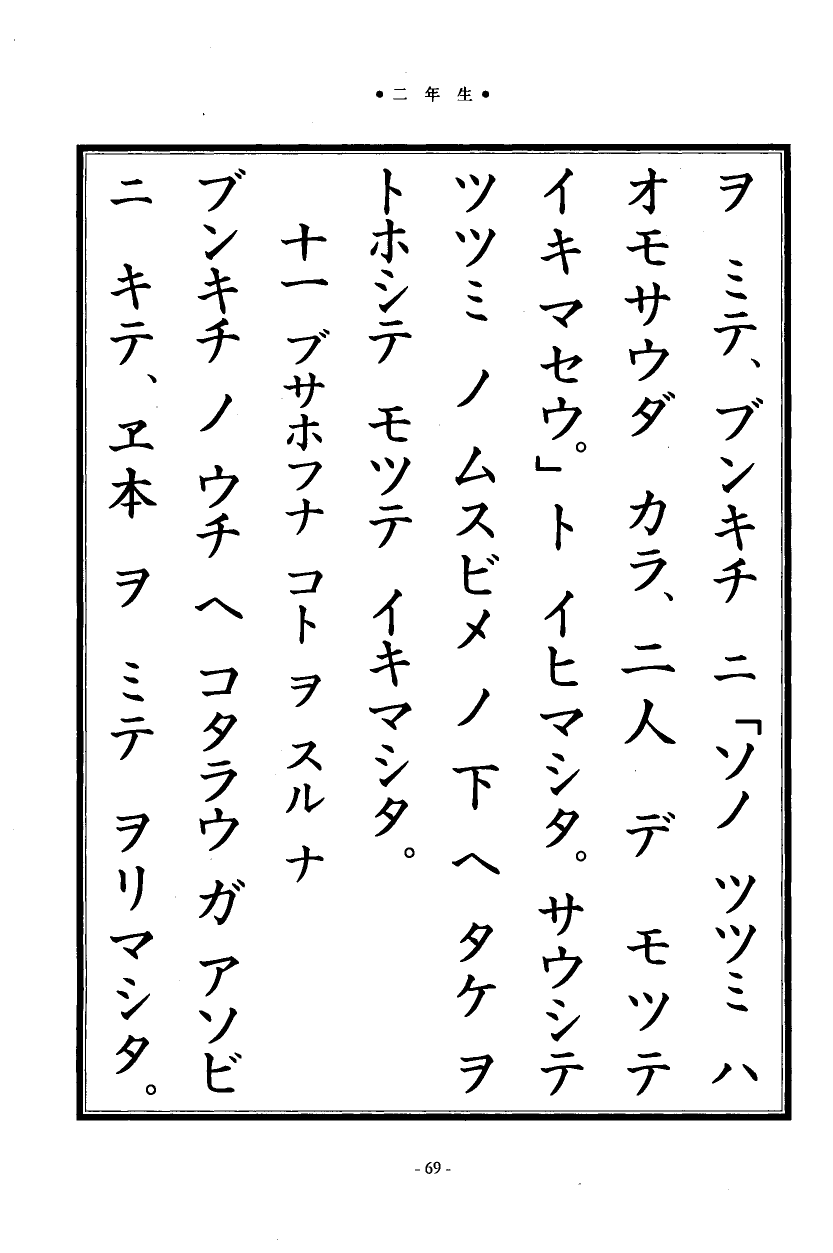 ● 二 年 生 ●
ヲ ミテ、ブンキチ ニ「ソノ ツツミ ハ
オモサウダ カラ、二人 デ モツテ
イキマセウ。」ト イヒマシタ。サウシテ
ツツミ ノ ムスビメ ノ 下 ヘ タケ ヲ
トホシテ モツテ イキマシタ。
十一 ブサホフナ コト ヲ スル ナ
ブンキチ ノ ウチ ヘ コタラウ ガ アソビ
ニ キテ、ヱ本 ヲ ミテ ヲリマシタ。
- 69 -